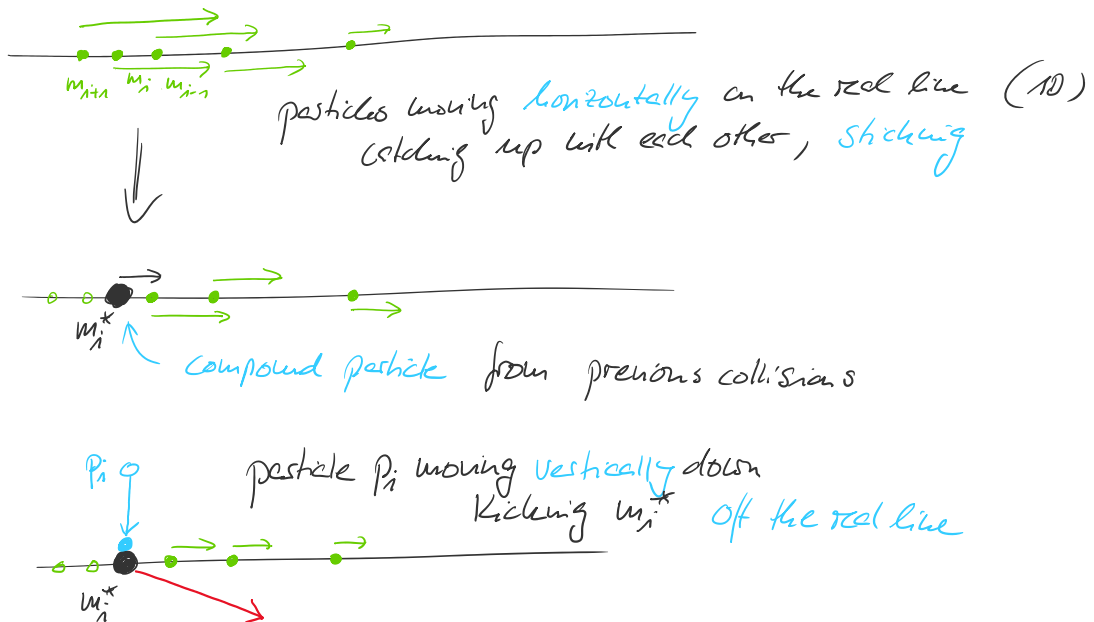 m_{i+1} m_i m_{i-1}
particles moving horizontally on the real line (1D)
catching up with each other, sticking
m_i^*
compound particle from previous collisions
p_i particle p_i moving vertically down
kicking m_i^* off the real line
m_i^*